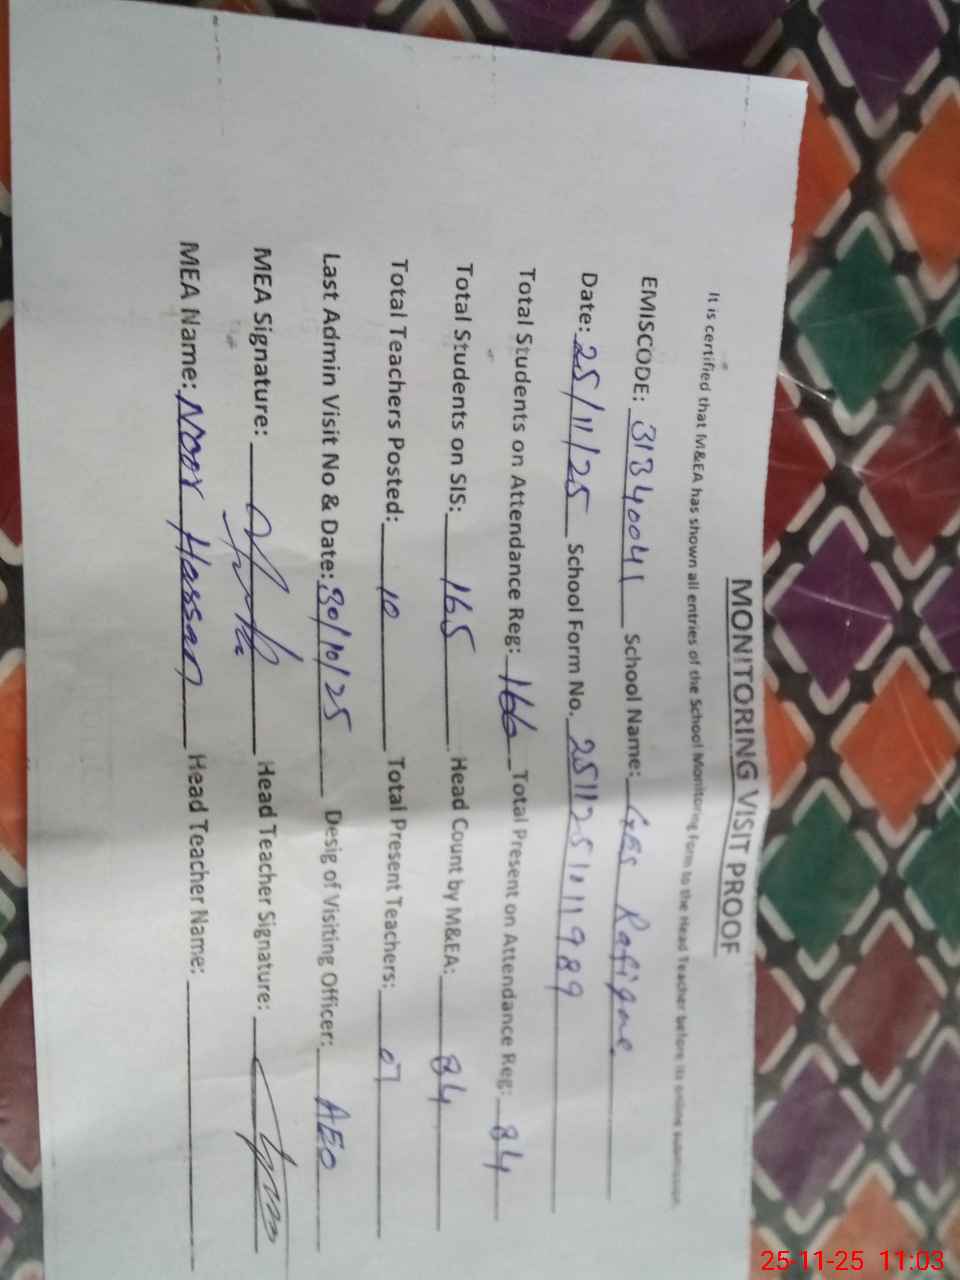 MONITORING VISIT PROOF
It is certified that M&EA has shown all entries of the School Monitoring Form to the Head Teacher before its online submission
EMISCODE: 31340041 School Name: GES Rafique
Date: 25/11/25 School Form No. 2511251111989
Total Students on Attendance Reg: 166 Total Present on Attendance Reg: 84
Total Students on SIS: 165 Head Count by M&EA: 84
Total Teachers Posted: 10 Total Present Teachers: 07
Last Admin Visit No & Date: 30/10/25 Desig of Visiting Officer: AEO
MEA Signature: Head Teacher Signature:
MEA Name: Noor Hassan Head Teacher Name:
25-11-25 11:03